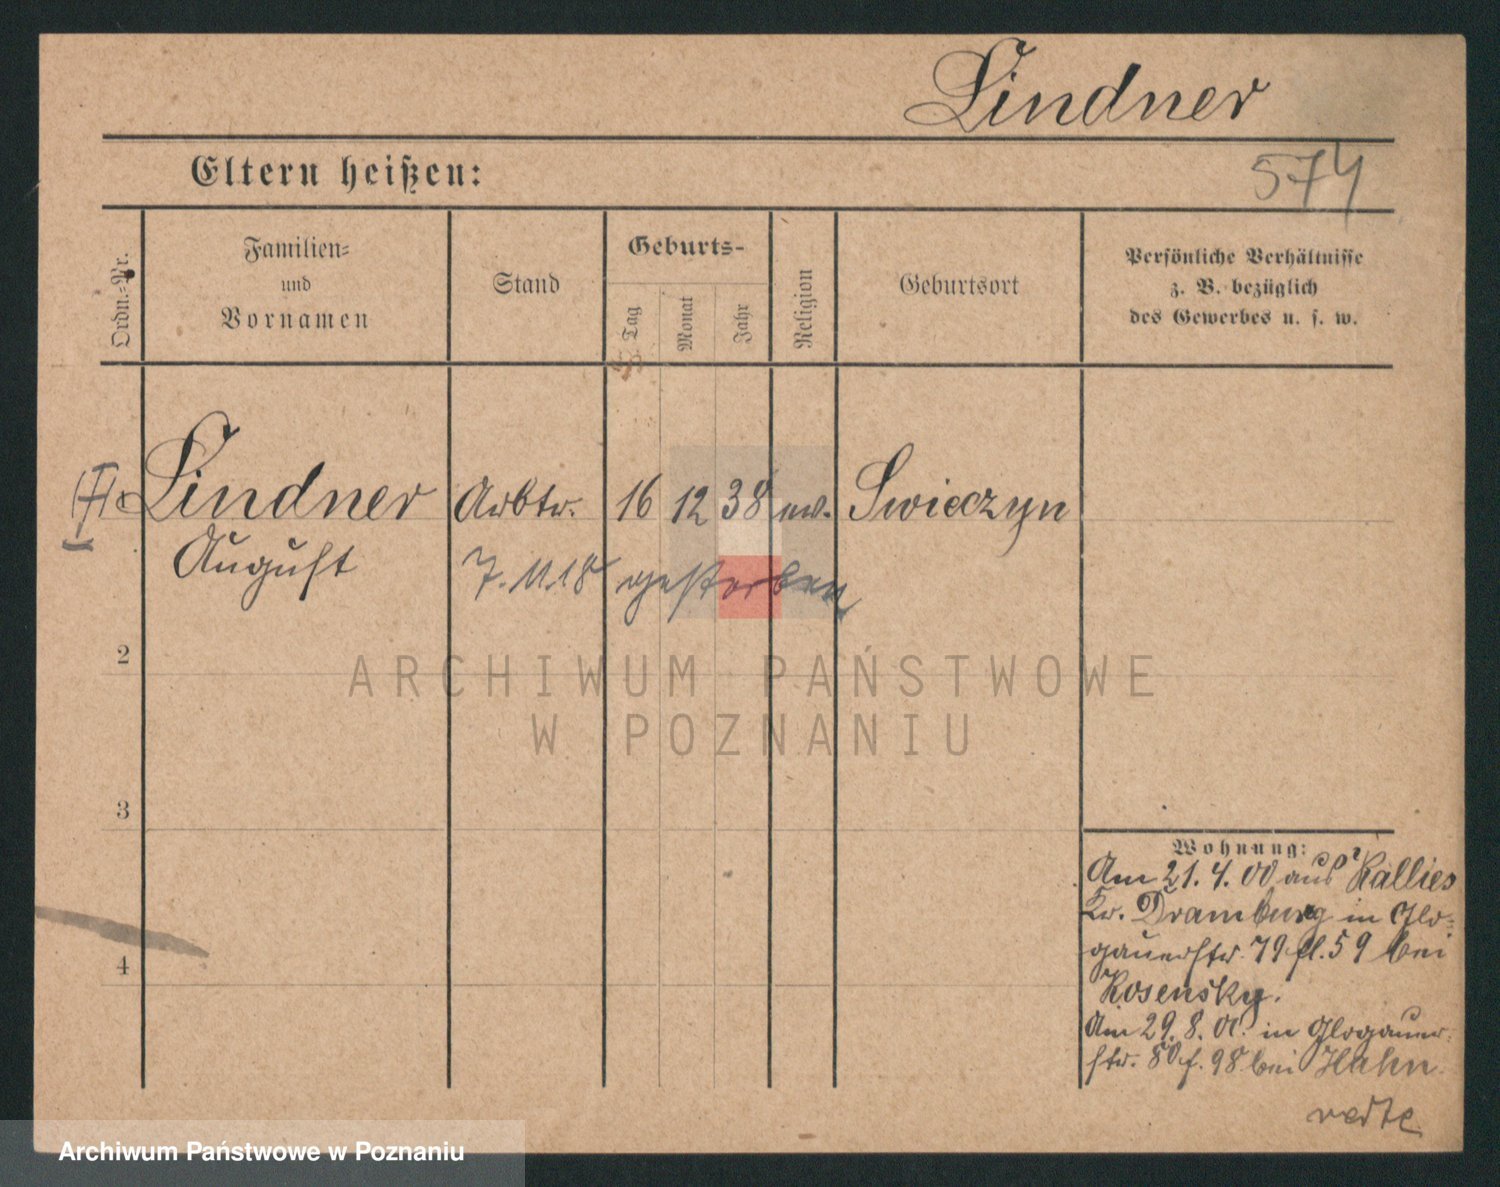 Lindner
574
Eltern heißen:
Ordn.-Nr.
Familien-
und
Vornamen
Stand
Geburts-
Tag
Monat
Jahr
Religion
Geburtsort
Persönliche Verhältnisse
z. B. bezüglich
des Gewerbes u. s. w.
Lindner Arbtr. 16 12 38 ev. Swieczyn
August 7.11.18 gestorben
2
3
4
Wohnung:
Am 21.4.00 aus Kallies
Kr. Dramburg in Glo-
gauerstr. 79 fl. 59 bei
Rosensky.
Am 29.8.00 in Glogauer-
str. 80 f. 98 bei Hahn.
ARCHIWUM PAŃSTWOWE
W POZNANIU
Archiwum Państwowe w Poznaniu